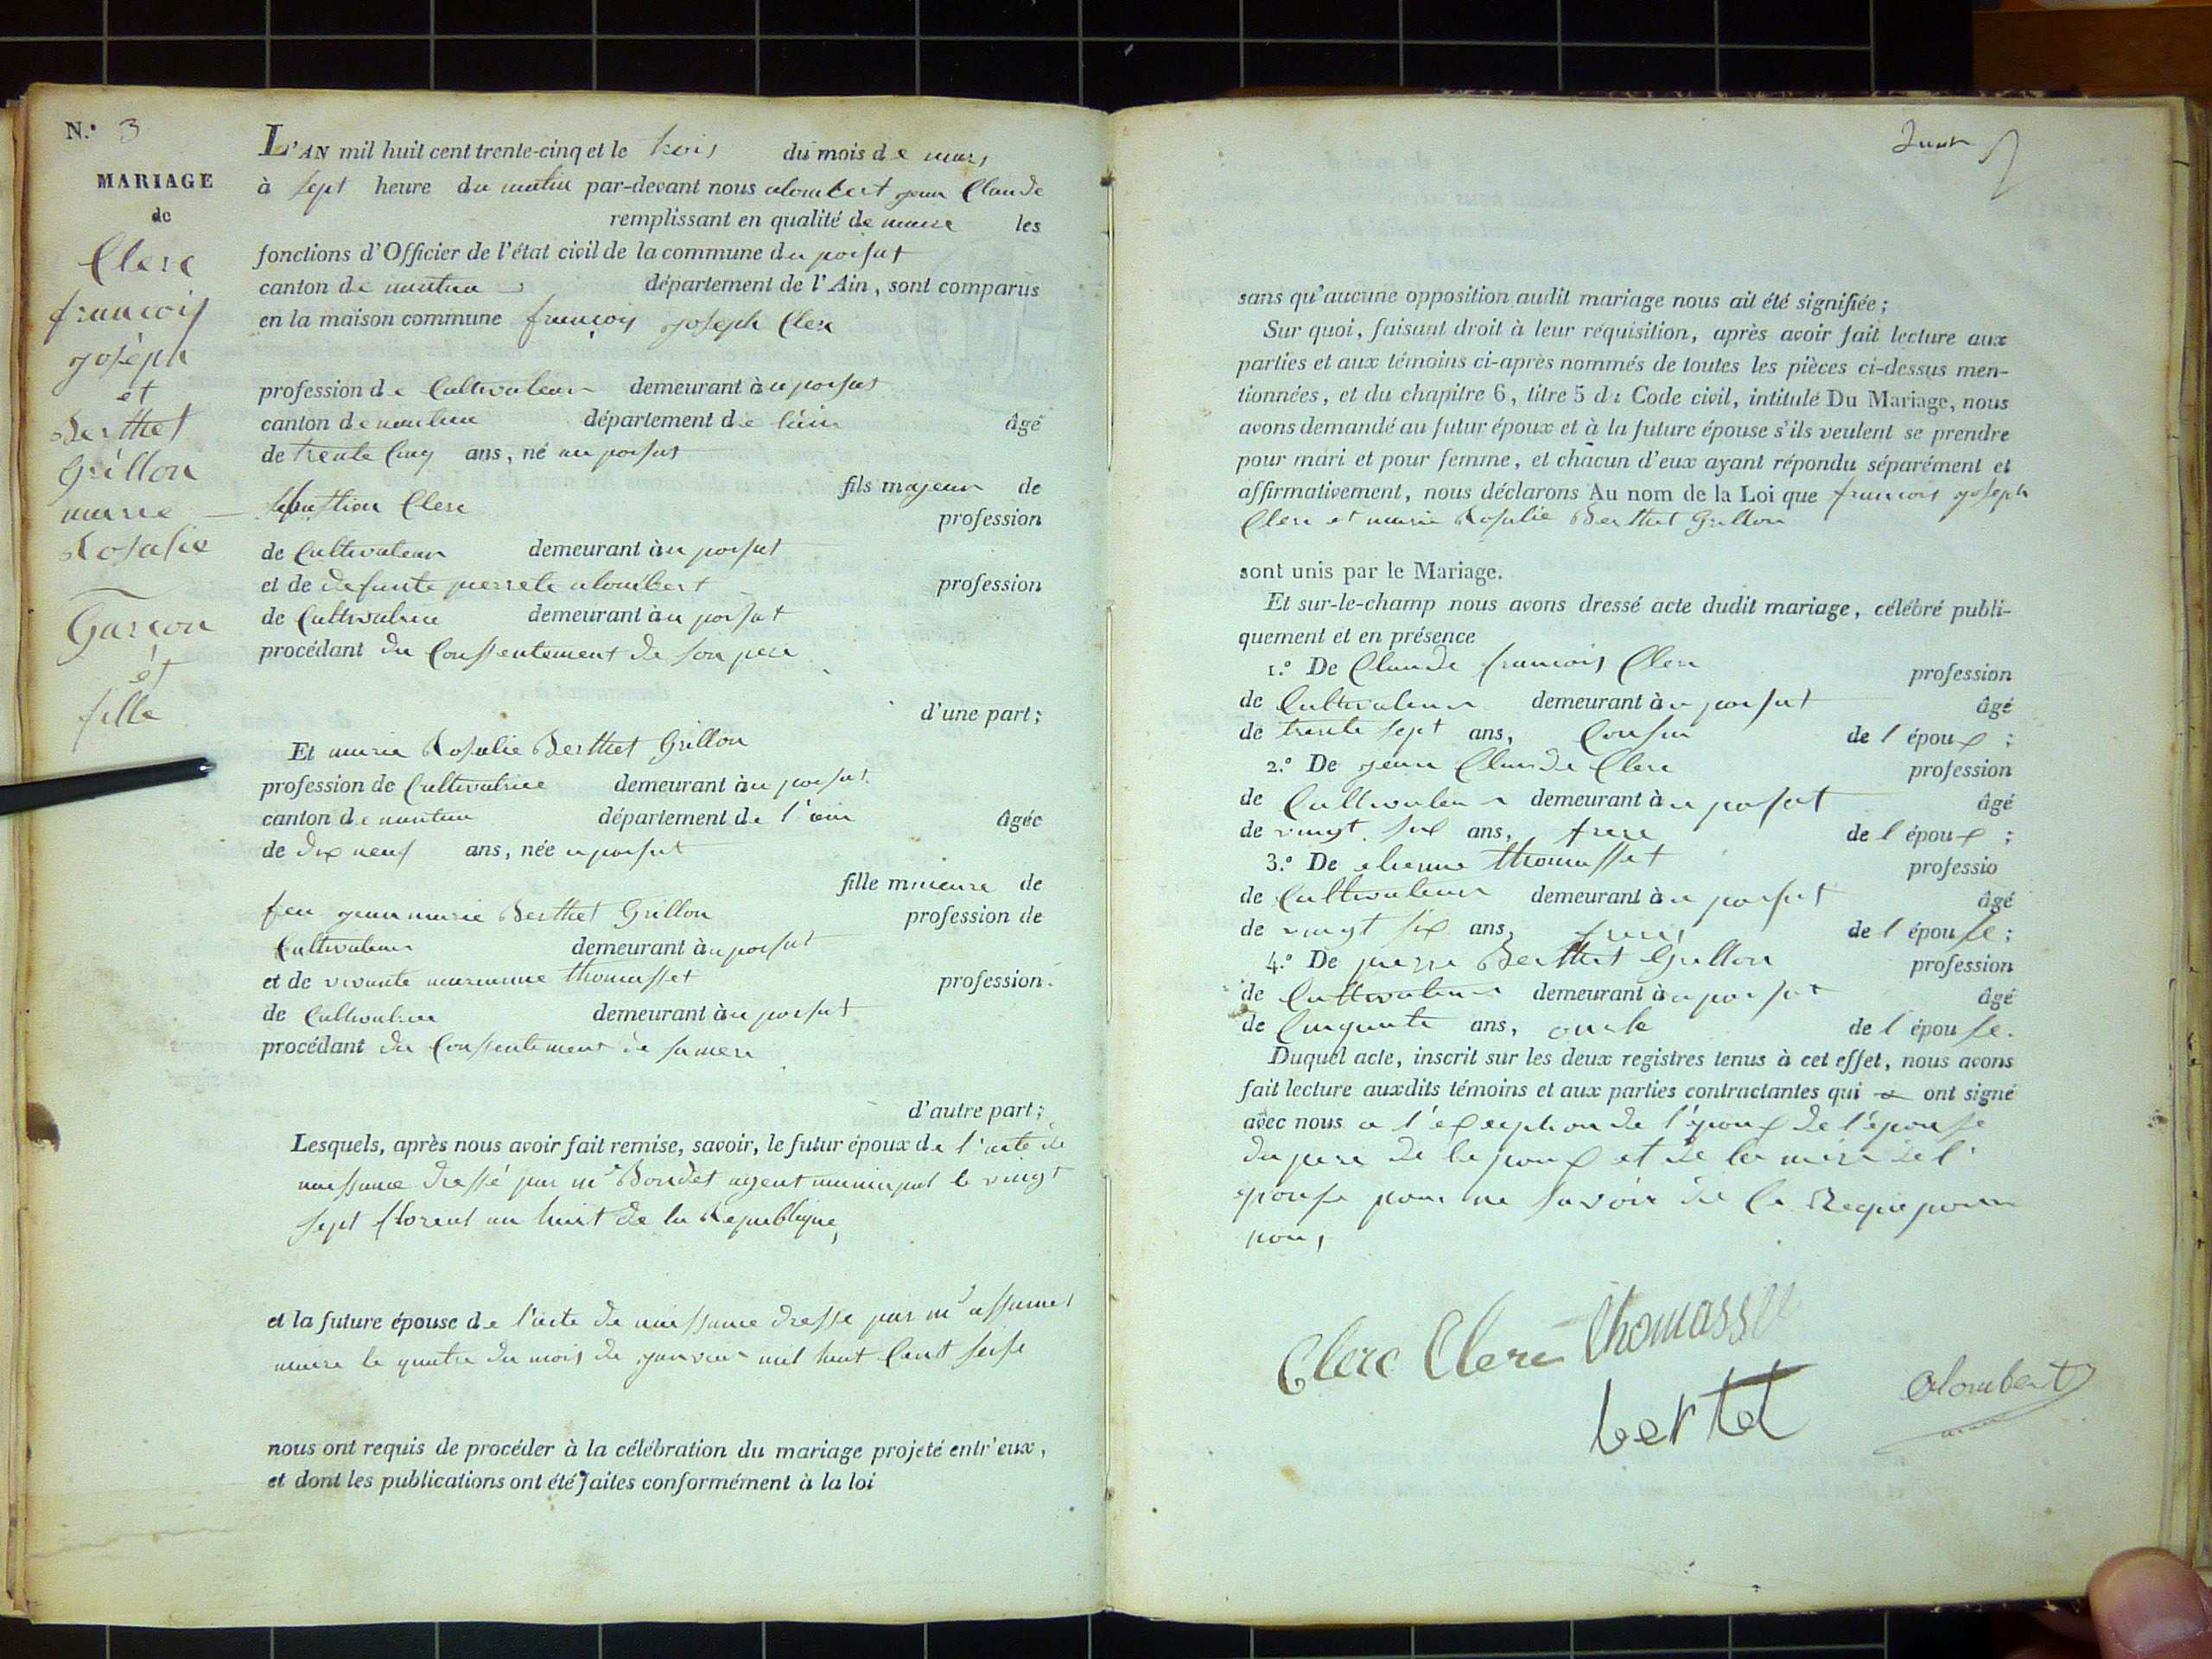 N.° 3
MARIAGE
de
Clerc
francois
joseph
et
Berthet
Grillon
marie
Rosalie
Garçon
et
fille
L'AN mil huit cent trente-cinq et le trois du mois de mars
à sept heure du matin par-devant nous alombert jean Claude
remplissant en qualité de maire les
fonctions d'Officier de l'état civil de la commune du poisat
canton de nantua département de l'Ain, sont comparus
en la maison commune françois joseph Clerc
profession de Cultivateur demeurant au poisat
canton de nantua département de l'ain âgé
de trente cinq ans, né au poisat
fils majeur de
sebastien Clerc
profession
de Cultivateur demeurant au poisat
et de defunte pierrete alombert profession
de Cultivatrice demeurant au poisat
procédant du Conssentement de son pere
d'une part;
Et marie Rosalie Berthet Grillon
profession de Cultivatrice demeurant au poisat
canton de nantua département de l'ain âgée
de dix neuf ans, née au poisat
fille mineure de
feu jean marie Berthet Grillon profession de
Cultivateur demeurant au poisat
et de vivante marianne thomasset profession
de Cultivatrice demeurant au poisat
procédant du Conssentement de sa mere
d'autre part;
Lesquels, après nous avoir fait remise, savoir, le futur époux de l'acte de
naissance dressé par mr Bondet agent municipal le vingt
sept floreal an huit de la Republique,
et la future épouse de l'acte de naissance dresse par mr
maire le quatre du mois de janvier mil huit Cent seise
nous ont requis de procéder à la célébration du mariage projeté entr'eux,
et dont les publications ont été faites conformément à la loi
sans qu'aucune opposition audit mariage nous ait été signifiée;
Sur quoi, faisant droit à leur réquisition, après avoir fait lecture aux
parties et aux témoins ci-après nommés de toutes les pièces ci-dessus men-
tionnées, et du chapitre 6, titre 5 du Code civil, intitulé Du Mariage, nous
avons demandé au futur époux et à la future épouse s'ils veulent se prendre
pour mari et pour femme, et chacun d'eux ayant répondu séparément et
affirmativement, nous déclarons Au nom de la Loi que francois joseph
Clerc et marie Rosalie Berthet Grillon
sont unis par le Mariage.
Et sur-le-champ nous avons dressé acte dudit mariage, célébré publi-
quement et en présence
1.° De Claude francois Clerc profession
de Cultivateur demeurant au poisat âgé
de trente sept ans, Cousin de l'époux ;
2.° De jean Claude Clerc profession
de Cultivateur demeurant au poisat âgé
de vingt six ans, frere de l'époux ;
3.° De etienne thomasset professio
de Cultivateur demeurant au poisat âgé
de vingt six ans, de l'épouse ;
4.° De pierre Berthet Grillon profession
de Cultivateur demeurant au poisat âgé
de Cinquante ans, oncle de l'épouse.
Duquel acte, inscrit sur les deux registres tenus à cet effet, nous avons
fait lecture auxdits témoins et aux parties contractantes qui ont signé
avec nous a l'exception de l'époux de l'épouse
du pere de l'epoux et de la mère de l'
epouse pour ne savoir de ce Requis
Clerc Clerc thomasset
bertet
alombert